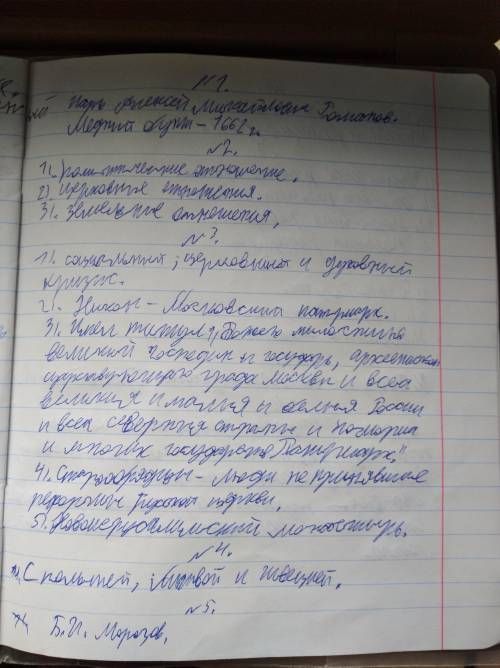 №1.
Царь Алексей Михайлович Романов.
Медный бунт - 1662 г.
№2.
1). политические отношение.
2). церковные отношения.
3). Земельные отношения.
№3.
1). социальный, церковный и духовный
кризис.
2). Никон - Московский патриарх.
3). Имел титул „Божею милостию
великий господин и государь, архиепископ
царствующего града Москвы и всеа
великия и малыя и белыя России
и всеа северныя страны и помориа
и многих государств Патриарх."
4). Старообрядцы - люди не принявшие
реформы Русской церкви.
5). Новоиерусалимский монастырь.
№4.
С польшей, Литвой и швецией.
№5.
Б.И. Морозов.